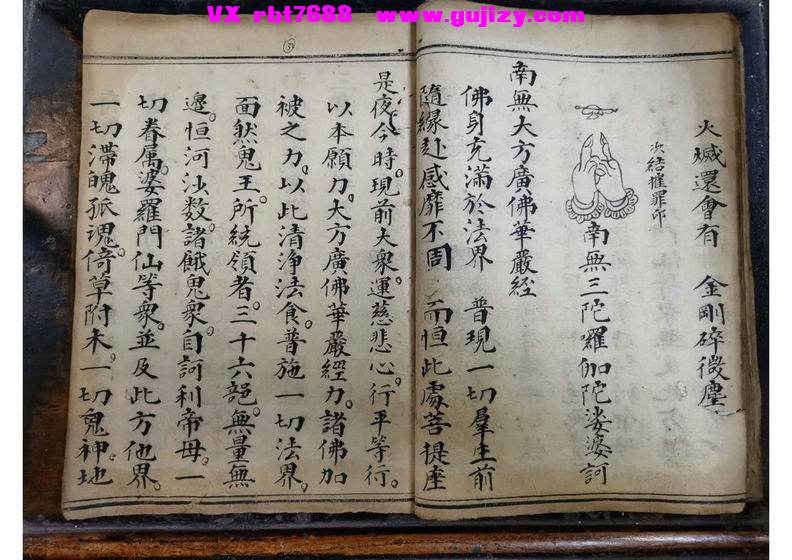 VX rbt7688 www.gujizy.com
火堿還會有 金剛碎微塵
次結摧罪印
南無三陀囉伽陀娑婆訶
南無大方廣佛華嚴經
佛身充滿於法界 普現一切羣生前
隨緣赴感靡不周 而恒此處菩提座
是夜今時。現前大衆。運慈悲心。行平等行。
以本願力。大方廣佛華嚴經力。諸佛加
被之力。以此清淨法食。普施一切法界。
面然鬼王。所統領者。三十六部。無量無
邊。恒河沙数。諸餓鬼衆。自訶利帝母。一
切眷属。婆羅門仙等衆。並及此方他界。
一切滞魄孤魂。倚草附木。一切鬼神。地